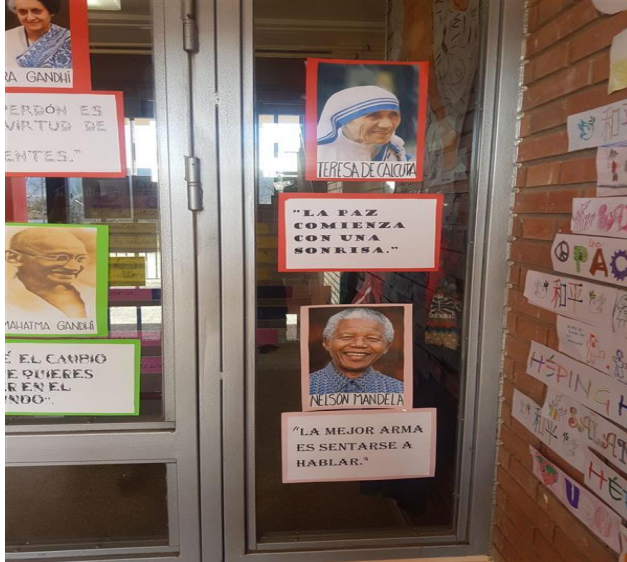 RA GANDHI
PERDÓN ES
VIRTUD DE
ENTES."
MAHATMA GANDHI
É EL CAMBIO
E QUIERES
R EN EL
NDO".
TERESA DE CALCUTA
"LA PAZ
COMIENZA
CON UNA
SONRISA."
NELSON MANDELA
"LA MEJOR ARMA
ES SENTARSE A
HABLAR."
和平
HÉPÍNG
和平